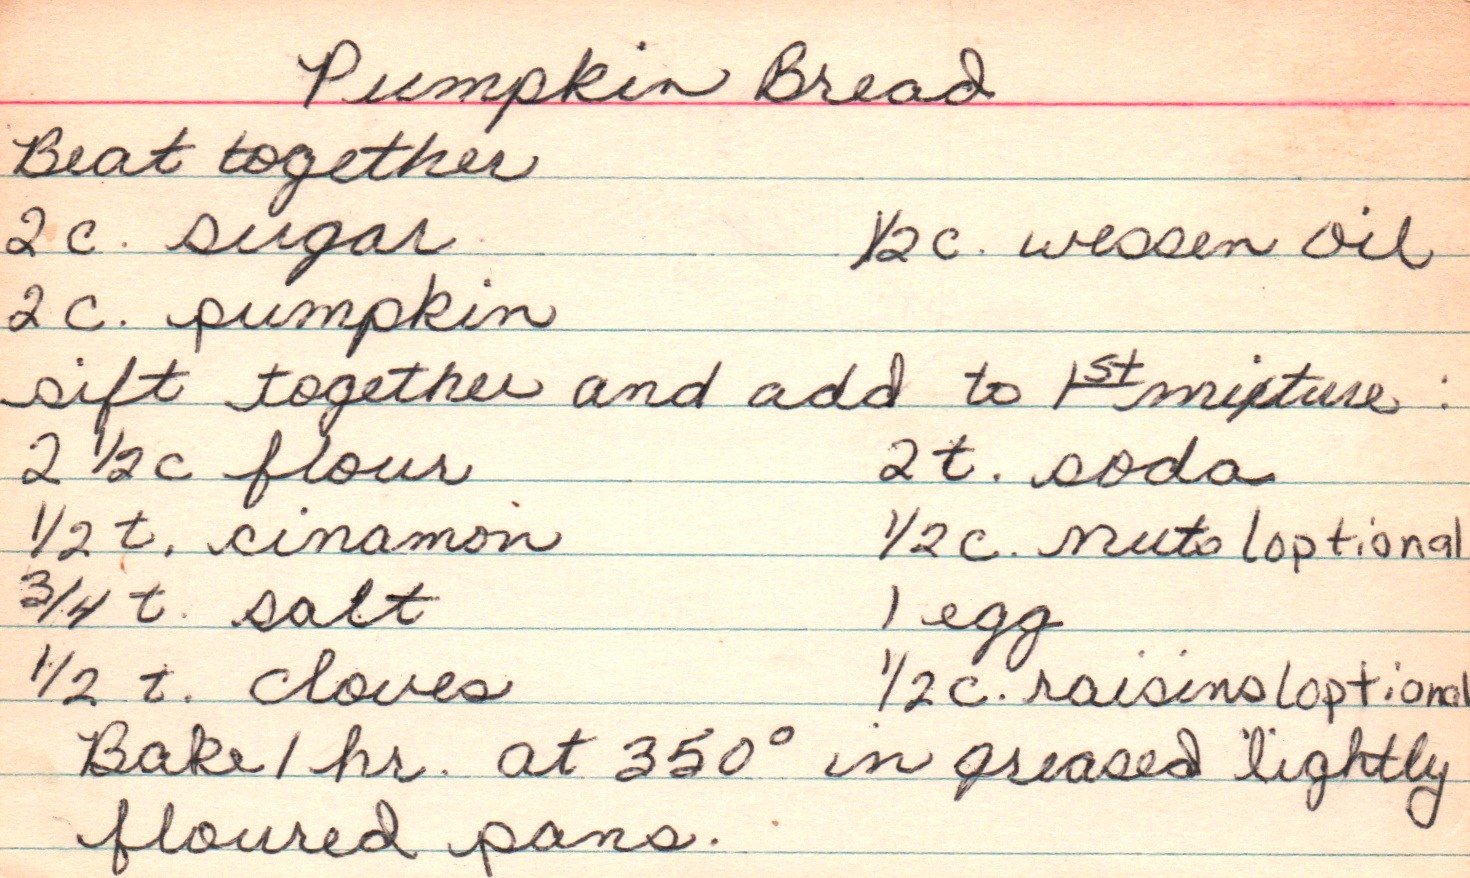 Pumpkin Bread
Beat together
2 c. sugar 1/2 c. wessen oil
2 c. pumpkin
sift together and add to 1st mixture :
2 1/2 c flour 2 t. soda
1/2 t. cinamon 1/2 c. nuts (optional
3/4 t. salt 1 egg
1/2 t. cloves 1/2 c. raisins (optional
Bake 1 hr. at 350° in greased lightly
floured pans.